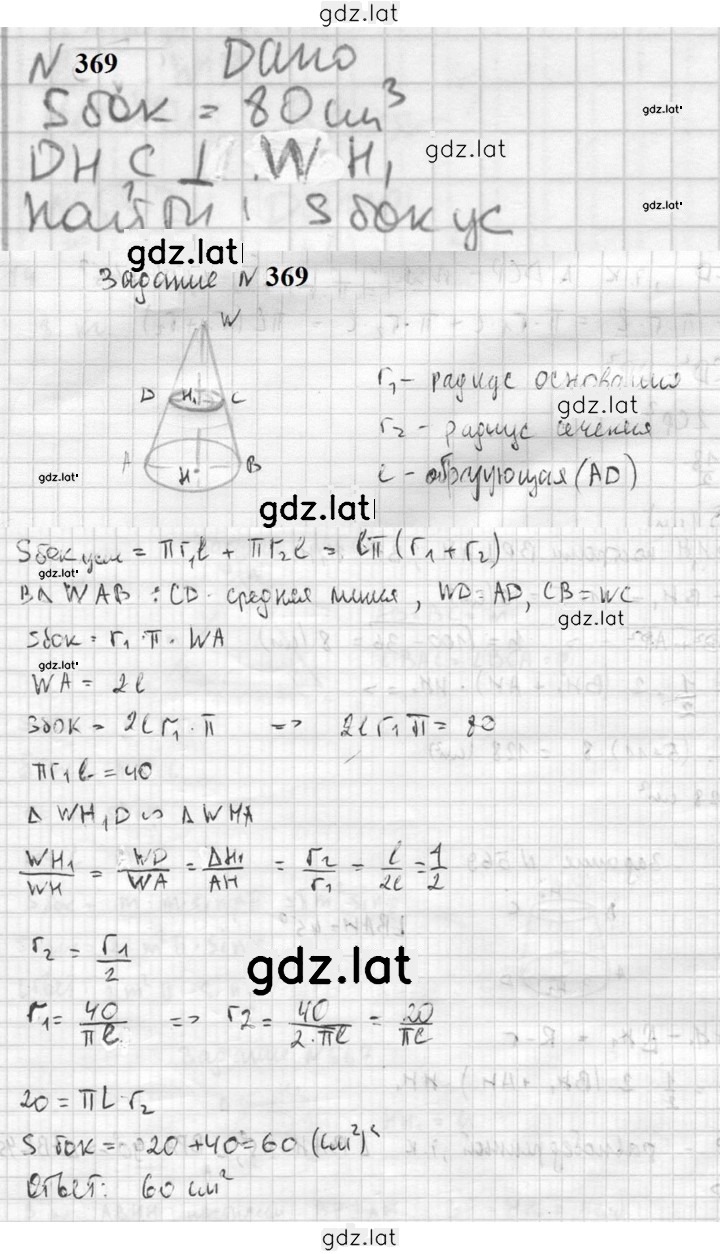 gdz.lat
N 369 Дано
S бок = 80 см³
gdz.lat
DHC ⊥ WH₁
gdz.lat
найти: S бок ус
gdz.lat
gdz.lat
Задание N 369
W
D H₁ C
r₁ - радиус основания
gdz.lat
r₂ - радиус сечения
A H B
ℓ - обрзующая (AD)
gdz.lat
gdz.lat
S бок усм = πr₁ℓ + πr₂ℓ = ℓπ(r₁ + r₂)
gdz.lat
В Δ WAB : CD - средняя линия, WD = AD, CB = WC
gdz.lat
Sбок = r₁ · π · WA
gdz.lat
WA = 2ℓ
Sбок = 2ℓr₁ · π => 2ℓr₁π = 80
πr₁ℓ = 40
Δ WH₁D ∽ Δ WHA
WH₁/WH = WD/WA = ΔH₁/AH = r₂/r₁ = ℓ/2ℓ = 1/2
r₂ = r₁/2
gdz.lat
r₁ = 40/πℓ => r₂ = 40/2·πℓ = 20/πℓ
20 = πL·r₂
S бок = 20 + 40 = 60 (см²)
Ответ: 60 см²
gdz.lat